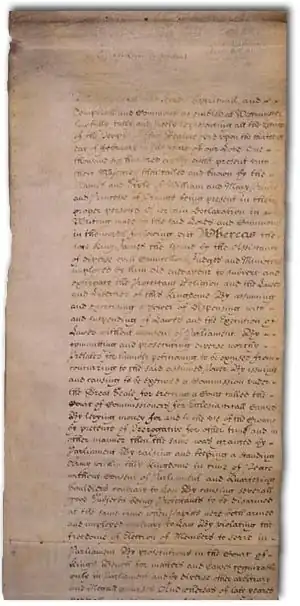 Lords Spirituall and
Temporall and Comons assembled at Westminster
lawfully fully and freely representing all the Estates
of the People of this Realme did upon the thirteenth
day of February in the yeare of our Lord One
thousand six hundred eighty eight present unto
their Majesties then called and known by the
Names and Stile of William and Mary Prince
and Princesse of Orange being present in their
proper persons a certain declaration in
Writeing made by the said Lords and Comons
in the words following vizt Whereas the
late King James the Second by the assistance
of diverse evill Councellors Judges and Ministers
imployed by him did endeavor to subvert and
extirpate the Protestant Religion and the Lawes
and Liberties of this Kingdome By assuming
and exerciseing a Power of Dispensing with
and suspending of Lawes and the Execution of
Lawes without consent of Parliament By
committing and prosecuting diverse worthy
Prelates for humbly petitioning to be excused from
concurring to the said assumed Power By issuing
and causing to be executed a Commission under
the Great Seale for erecting a Court called the
Court of Commissioners for Ecclesiasticall Causes
By levying money for and to the use of the Crowne
by pretence of Prerogative for other time and in
other manner then the same was granted by
Parliament By raising and keeping a standing
Army within this Kingdome in time of Peace
without Consent of Parliament and Quartering
Souldiers contrary to Law By causing severall
good Subjects being Protestants to be disarmed
at the same time when Papists were both armed
and imployed contrary to Law By violating the
freedome of Election of Members to serve in
Parliament By prosecutions in the Court of
Kings Bench for matters and causes cognizable
only in Parliament and by diverse other arbitrary
and illegal courses And whereas of late yeares